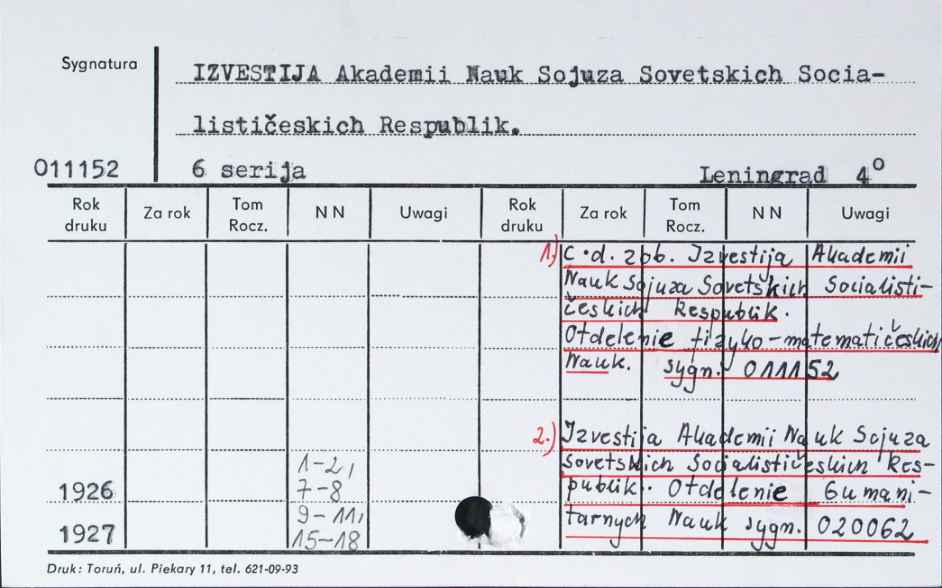 Sygnatura
IZVESTIJA Akademii Nauk Sojuza Sovetskich Socia-
lističeskich Respublik.
011152 6 serija Leningrad 4°
Rok druku Za rok Tom Rocz. NN Uwagi Rok druku Za rok Tom Rocz. NN Uwagi
1.) C.d. zob. Izvestija Akademii
Nauk Sojuza Sovetskich Socialisti-
českich Respublik.
Otdelenie fizyko-matematičeskich
Nauk. sygn. 011152
2.) Izvestija Akademii Nauk Sojuza
Sovetskich Socialističeskich Res-
publik. Otdelenie Gumani-
tarnych Nauk sygn. 020062
1926 1-2,
7-8
1927 9-11,
15-18
Druk: Toruń, ul. Piekary 11, tel. 621-09-93